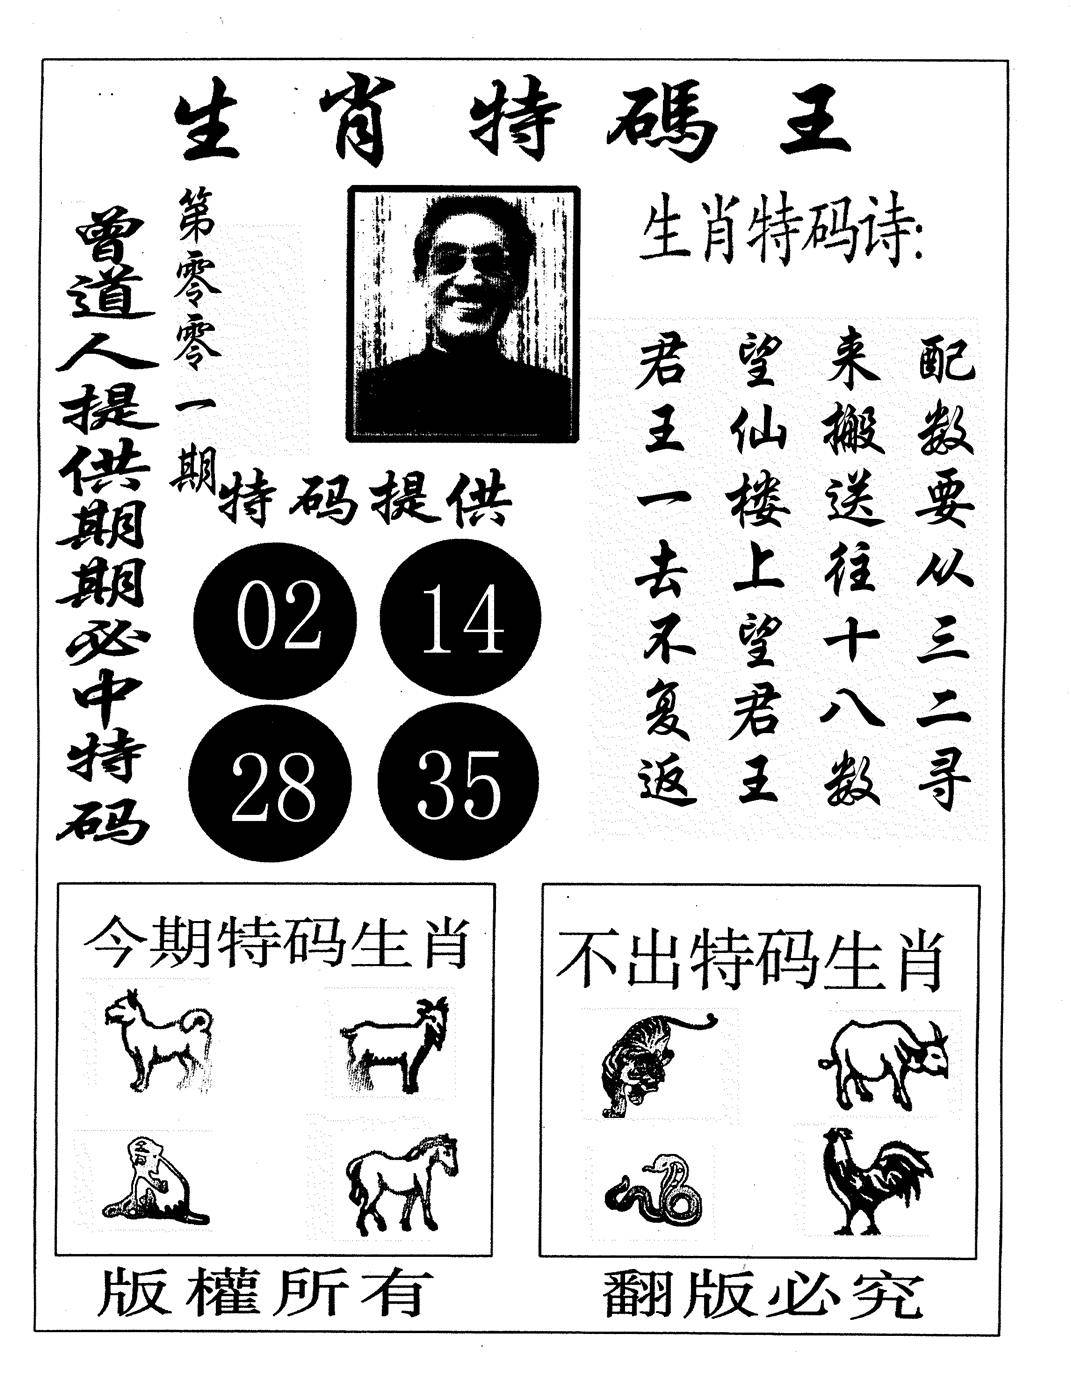 生肖特碼王
曾道人提供期期必中特码
第零零一期
生肖特码诗:
君王一去不复返
望仙楼上望君王
来搬送往十八数
配数要从三二寻
特码提供
02 14
28 35
今期特码生肖
不出特码生肖
版權所有
翻版必究